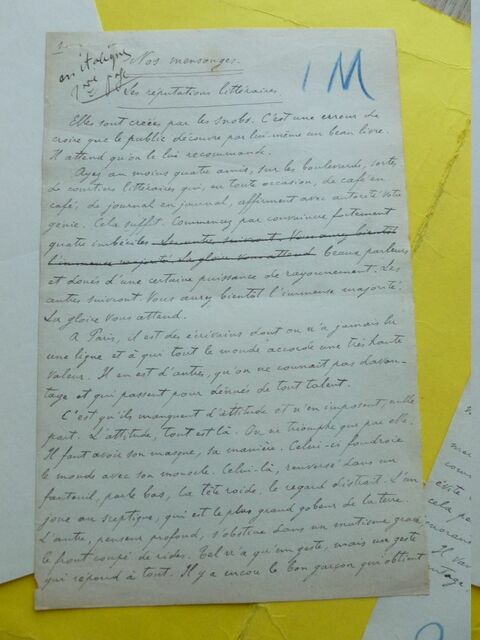 1
en italique
1ère page
Nos mensonges.
1 M
Les réputations littéraires.
Elles sont créées par les snobs. C'est une erreur de
croire que le public découvre par lui-même un beau livre.
Il attend qu'on le lui recommande.
Ayez au moins quatre amis, sur les boulevards, sortes
de courtiers littéraires qui, en toute occasion, de café en
café, de journal en journal, affirment avec autorité votre
génie. Cela suffit. Commencez par convaincre fortement
quatre imbéciles. Les autres suivront. Vous aurez bientôt
l'immense majorité. La gloire vous attend beaux parleurs
et doués d'une certaine puissance de rayonnement. Les
autres suivront. Vous aurez bientôt l'immense majorité.
La gloire vous attend.
A Paris, il est des écrivains dont on n'a jamais lu
une ligne et à qui tout le monde accorde une très haute
valeur. Il en est d'autres, qu'on ne connait pas davan-
tage et qui passent pour dénués de tout talent.
C'est qu'ils manquent d'attitude et n'en imposent, nulle
part. L'attitude, tout est là. On ne triomphe que par elle.
Il faut avoir son masque, sa manière. Celui-ci foudroie
le monde avec son monocle. Celui-là, renversé dans un
fauteuil, parle bas, la tête roide, le regard distrait. L'un
joue au sceptique, qui est le plus grand gobeur de la terre.
L'autre, penseur profond, s'obstine dans un mutisme grave,
le front coupé de rides. Tel n'a qu'un geste, mais un geste
qui répond à tout. Il y a encore le bon garçon qui obtient
cela
Il